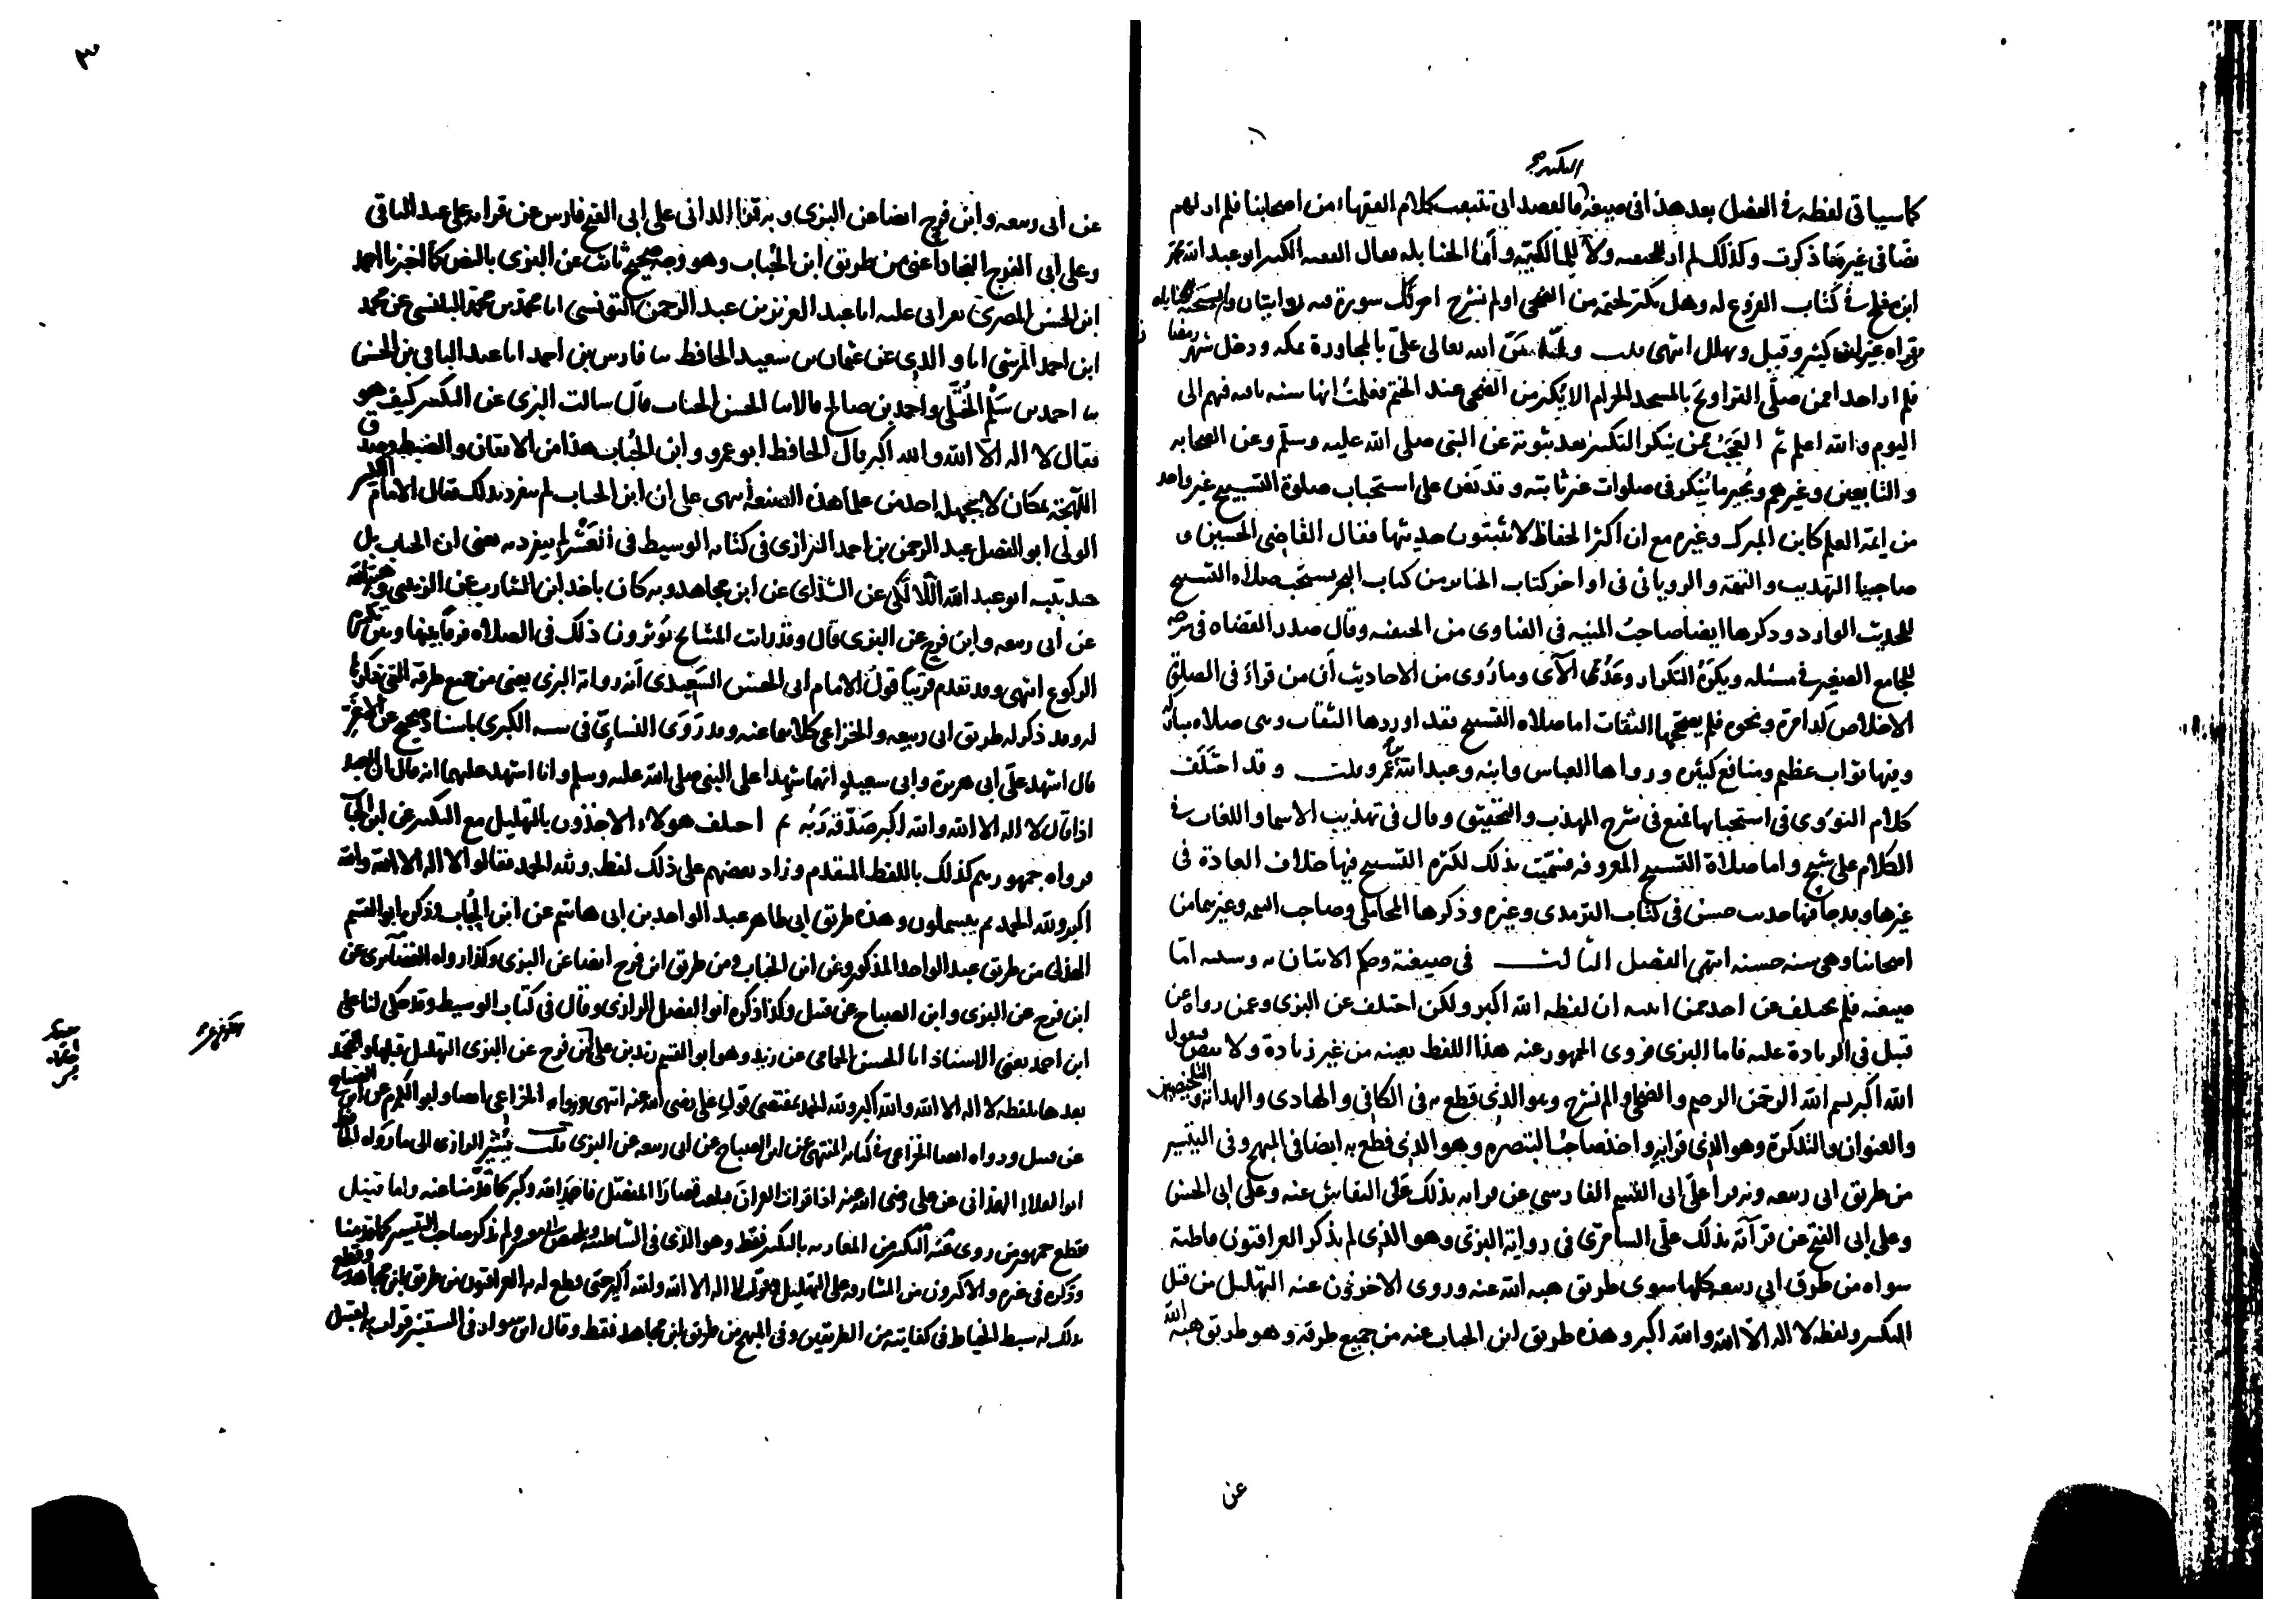 التكبير صح
كما سياتي لفظه في الفصل بعد هذا في صيغة قال بعد ان تتبعت كلام الفقهاء من اصحابنا فلم ار لهم
نصا في غير ما ذكرت وكذلك لم ار للحنفيه ولا للمالكية واما الحنابله فقال الفقيه الكبير ابو عبد الله محمد
ابن مفلح في كتاب الفروع له وهل يكبر لختمه من الضحى او الم نشرح اخر كل سورة فيه روايتان ولم يستحبه الحنابله
لقراه غير ابن كثير وقيل ويهلل انتهى قلت ولما من الله تعالى علي بالمجاورة بمكه ودخل شهر رمضان
فلم ار احدا ممن صلى التراويح بالمسجد الحرام الا يكبر من الضحى عند الختم فعلمت انها سنه باقيه فيهم الى
اليوم والله اعلم ثم العجب ممن ينكر التكبير بعد ثبوته عن النبي صلى الله عليه وسلم وعن الصحابه
والتابعين وغيرهم ويجيز ما ينكر في صلوات غير ثابته وقد نص على استحباب صلوة التسبيح غير واحد
من ايمة العلم كابن المبرك وغيره مع ان اكثر الحفاظ لا يثبتون حديثها فقال القاضي الحسين و
صاحبا التهذيب والتتمه والروياني في اواخر كتاب الجنائز من كتاب البحر يستحب صلاه التسبيح
للحديث الوارد وذكرها ايضا صاحب المنيه في الفتاوى من الحنفيه وقال صدر القضاه في شرحه
للجامع الصغير في مسئله ويكره التكرار وعد الآي وما روي من الاحاديث ان من قرا في الصلوة
الاخلاص كذا مرة ونحوه فلم يصححها الثقات اما صلاه التسبيح فقد اوردها الثقات وهي صلاه مباركه
وفيها ثواب عظيم ومنافع كثيره ورواها العباس وابنه وعبد الله بن عمرو قلت وقد اختلف
كلام النووي في استحبابها فمنع في شرح المهذب والتحقيق وقال في تهذيب الاسما واللغات في
الكلام على سبح واما صلاة التسبيح المعروفه فسميت بذلك لكثرة التسبيح فيها خلاف العادة في
غيرها وقد جا فيها حديث حسن في كتاب الترمذي وغيره وذكرها المحاملي وصاحب التتمه وغيرهما من
اصحابنا وهي سنه حسنه انتهى الفصل الثالث في صيغته وحكم الاتيان به وسببه اما
صيغته فلم يختلف عن احد ممن اثبته ان لفظه الله اكبر ولكن اختلف عن البزي وعمن رواه عن
قنبل في الزيادة عليه فاما البزي فروى الجمهور عنه هذا اللفظ بعينه من غير زيادة ولا نقص فيقول
الله اكبر بسم الله الرحمن الرحيم والضحى والم نشرح وهو الذي قطع به في الكافي والهادي والهداية والتلخيصين
والعنوان والتذكرة وهو الذي قرا به واخذ صاحب التبصره وهو الذي قطع به ايضا في المبهج وفي التيسير
من طريق ابي ربيعه وبه قرا على ابي القسم الفارسي عن قراته بذلك على النقاش عنه وعلى ابي الحسن
وعلى ابي الفتح عن قرآته بذلك على السامري في رواية البزي وهو الذي لم يذكر العراقيون قاطبة
سواه من طرق ابي ربيعه كلها سوى طريق هبه الله عنه وروى الاخرون عنه التهليل من قبل
التكبير ولفظه لا اله الا الله والله اكبر وهذه طريق ابن الحباب عنه من جميع طرقه وهو طريق هبة الله
عن
٣
عن ابي ربيعه وابن فرح ايضا عن البزي وبه قرا الداني على ابي الفتح فارس عن قراته على عبد الباقي
وعلى ابي الفرج النجار اعني من طريق ابن الحباب وهو وجه صحيح ثابت عن البزي بالنص كما اخبرنا احمد
ابن الحسن المصري بقراتي عليه انا عبد العزيز بن عبد الرحمن التونسي انا محمد بن محمد البلنسي عن محمد
ابن احمد المرسي انا والدي عن عثمان بن سعيد الحافظ ثنا فارس بن احمد انا عبد الباقي بن الحسن
ثنا احمد بن سلم الختلي واحمد بن صالح قالا ثنا الحسن الحباب قال سالت البزي عن التكبير كيف هو
فقال لا اله الا الله والله اكبر قال الحافظ ابو عمرو وابن الحباب هذا من الاتقان والضبط وصدق
اللهجة بمكان لا يجهله احد من علما هذه الصنعه انتهى على ان ابن الحباب لم ينفرد بذلك فقال الامام الكبير
الولي ابو الفضل عبد الرحمن بن احمد الرازي في كتابه الوسيط في العشر لم ينفرد به يعني ابن الحباب بل
حدثنيه ابو عبد الله اللالكي عن الشذاي عن ابن مجاهد وبه كان ياخذ ابن الشارب عن الزينبي وهبة الله
عن ابي ربيعه وابن فرح عن البزي قال وقد رايت المشايخ يوثرون ذلك في الصلاه فرقا بينها وبين تكبيرة
الركوع انتهى وقد تقدم قريبا قول الامام ابي الحسن السعيدي انه رواية البزي يعني من جميع طرقه التي ذكرها
له وقد ذكر له طريق ابي ربيعه والخزاعي كلاهما عنه وقد روى النسائي في سننه الكبرى باسناد صحيح عن الاغر
قال اشهد على ابي هريرة وابي سعيد انهما شهدا على النبي صلى الله عليه وسلم وانا اشهد عليهما انه قال ان العبد
اذا قال لا اله الا الله والله اكبر صدقه ربه ثم اختلف هولاء الاخذون بالتهليل مع التكبير عن ابن الحباب
فرواه جمهورهم كذلك باللفظ المتقدم وزاد بعضهم على ذلك لفظ ولله الحمد فقالوا لا اله الا الله والله
اكبر ولله الحمد ثم يبسملون وهذه طريق ابي طاهر عبد الواحد بن ابي هاشم عن ابن الحباب وذكره ابو القسم
الهذلي من طريق عبد الواحد المذكور وعن ابن الحباب ومن طريق ابن فرح ايضا عن البزي وكذا رواه الغضائري عن
ابن فرح عن البزي وابن الصباح عن قنبل وكذا ذكره ابو الفضل الرازي وقال في كتاب الوسيط وقد حكى لنا علي
ابن احمد يعني الاستاذ ابا الحسن الحمامي عن زيد وهو ابو القسم زيد بن علي عن ابن فرح عن البزي التهليل قبلها والتحميد
بعدها بلفظه لا اله الا الله والله اكبر ولله الحمد بمقتضى قول علي رضي الله عنه انتهى ورواه الخزاعي ايضا وابو الكرم عن ابن الصباح
عن قنبل ورواه ايضا الخزاعي في كتابه المنتهى عن ابن الصباح عن ابي ربيعه عن البزي قلت يشير الرازي الى ما رواه الحافظ
ابو العلاء الهمذاني عن علي رضي الله عنه اذا قرات القران فبلغت قصار المفصل فاحمد الله وكبر كما قدمنا عنه واما قنبل
فقطع جمهور من روى عنه التكبير من المغاربه بالتكبير فقط وهو الذي في الشاطبيه ولم يذكره صاحب التيسير كما قدمنا
وذكره في غيره والاكثرون من المشارقه على التهليل وهو قول لا اله الا الله والله اكبر حتى قطع له به العراقيون من طريق ابن مجاهد وقطع
بذلك له سبط الخياط في كفايته من الطريقين وفي المبهج من طريق ابن مجاهد فقط وقال ابن سوار في المستنير قرات به لقنبل